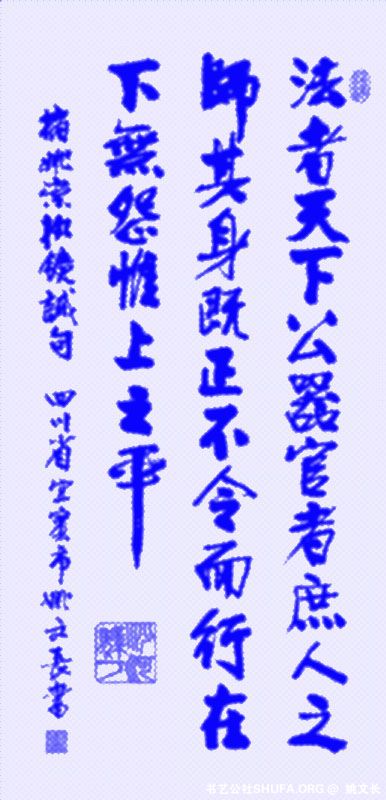 法者天下公器官者庶人之
師其身既正不令而行在
下無怨惟上之平
摘姚崇執鏡誡句 四川省宜賓市姚文長書
书艺公社SHUFA.ORG @ 姚文长